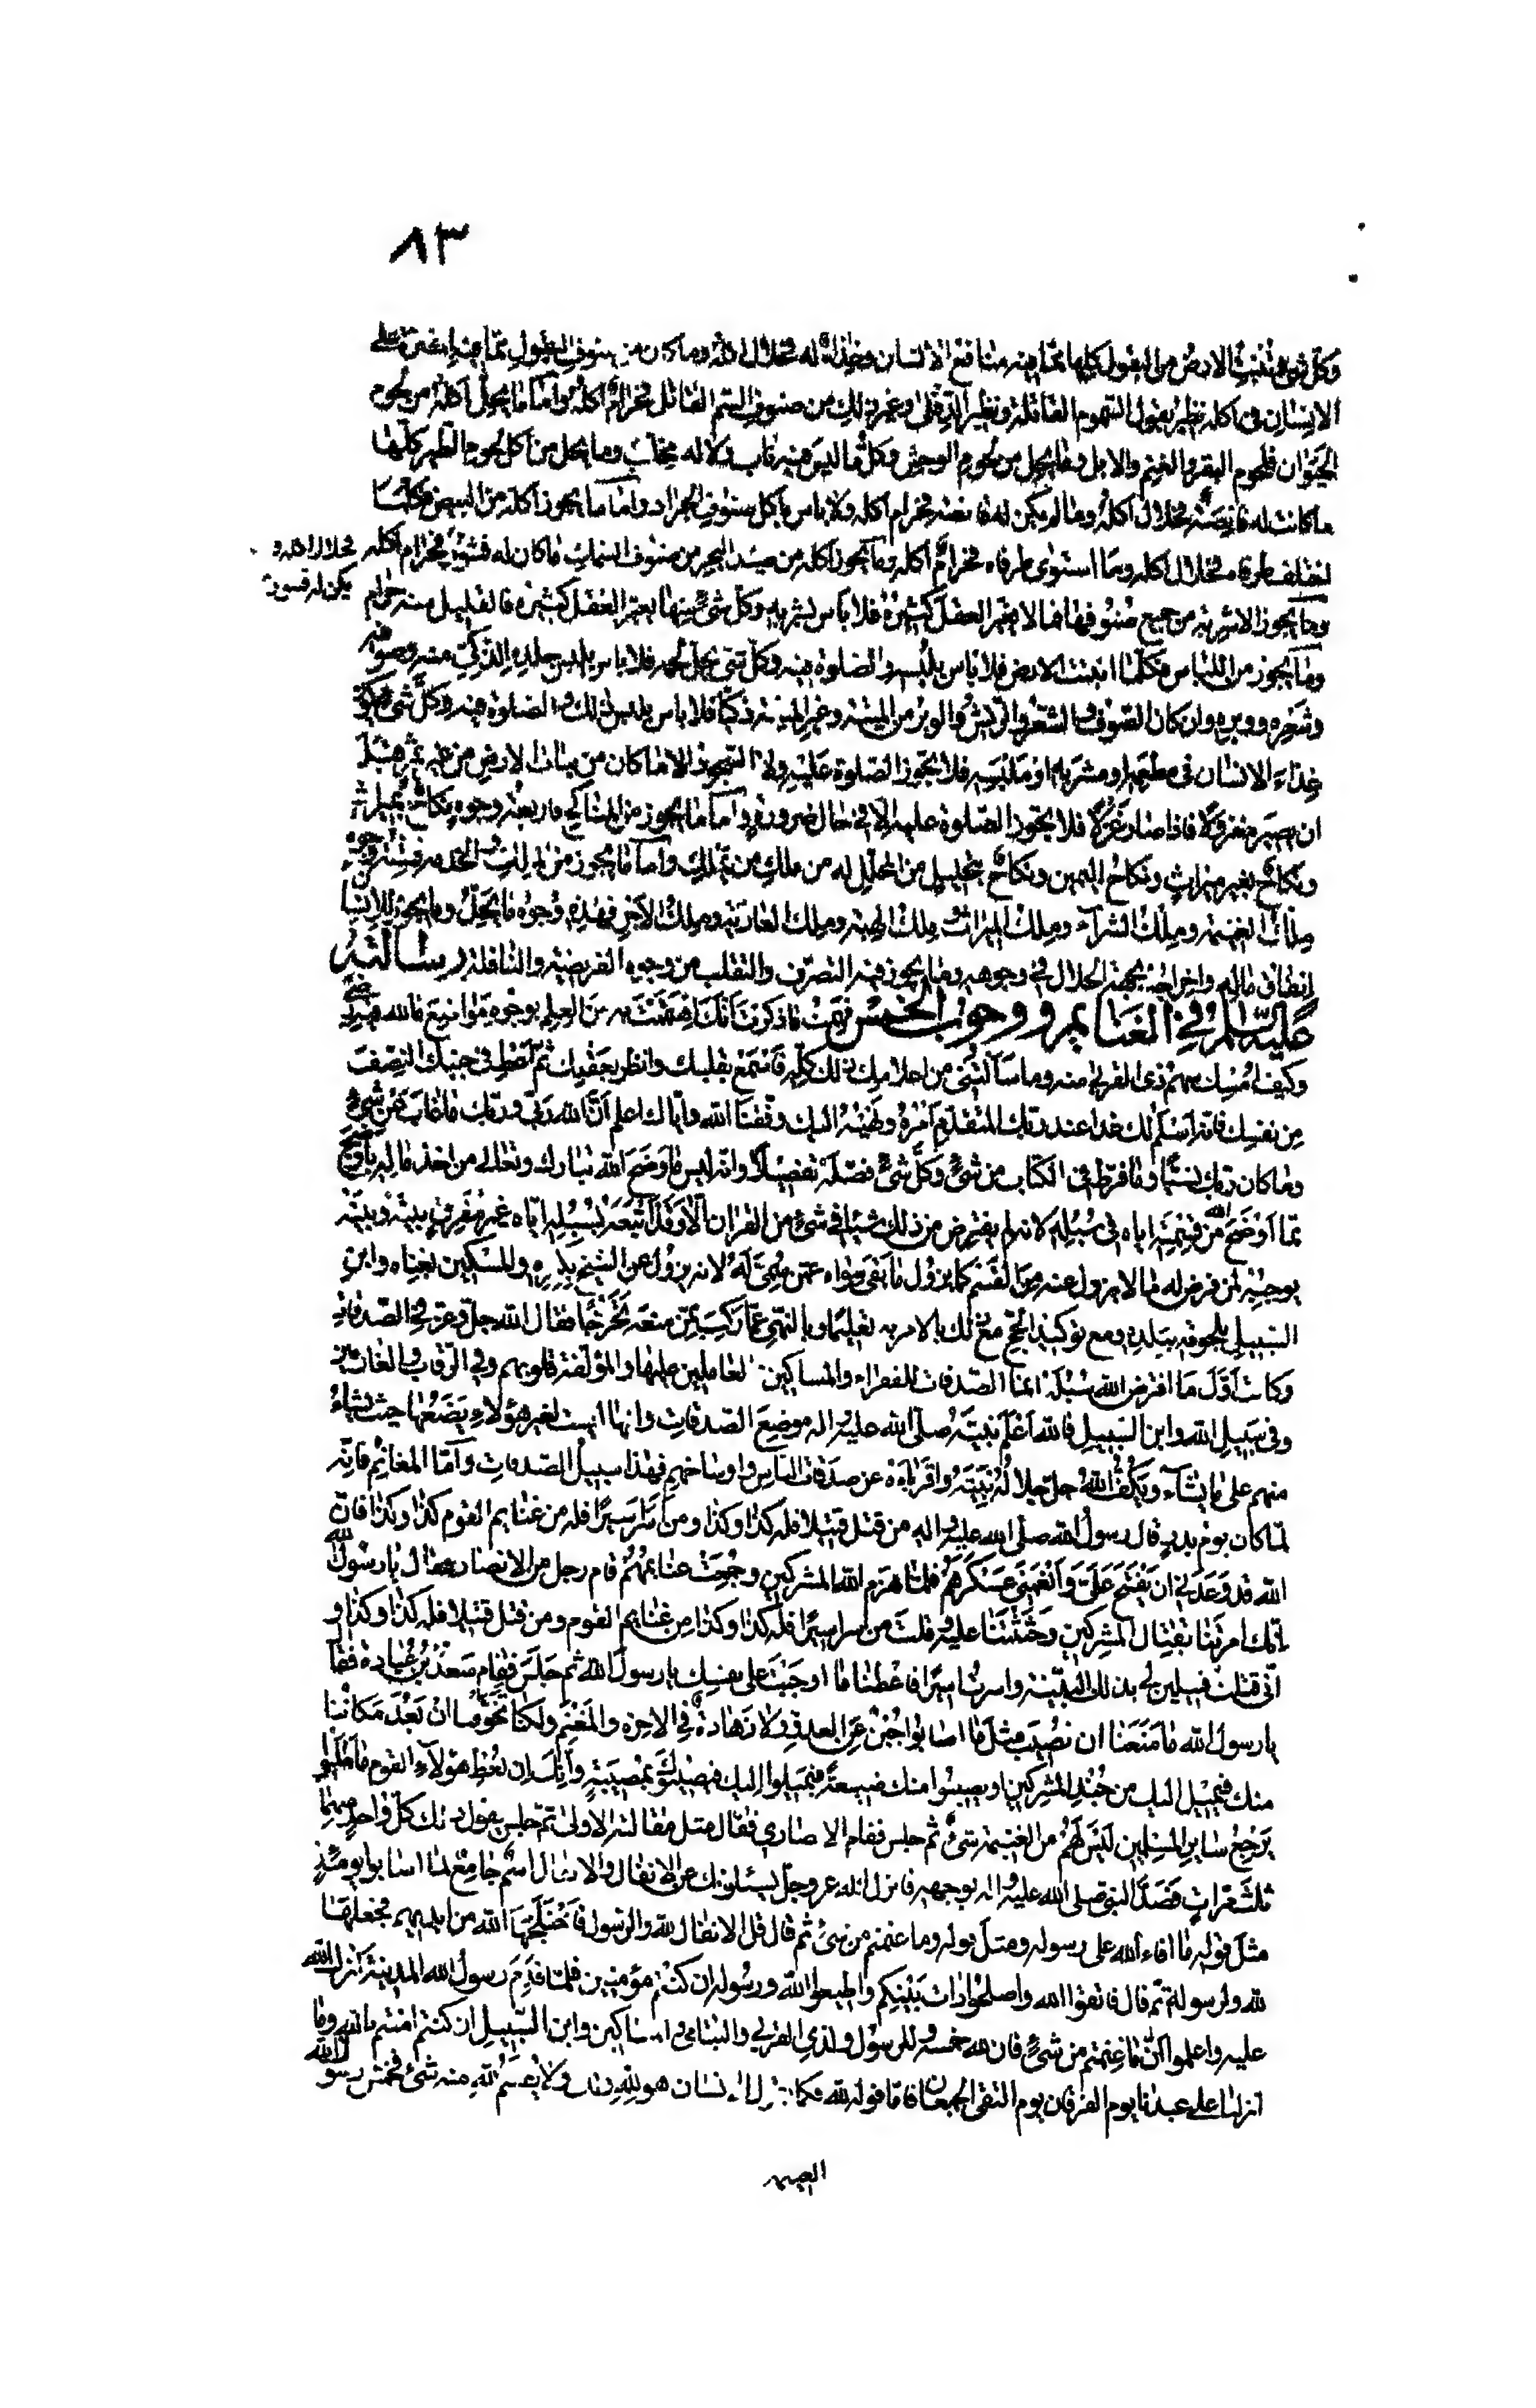 ٨٣
وكل شئ تنبت الارض من البقول كلها مما فيه منافع الانسان وغذاء له فحلال اكله وما كان من صنوف البقول مما فيه المضرة على
الانسان فى اكله نظير بقول السموم القاتلة ونظير الدفلى وغير ذلك من صنوف السم القاتل فحرام اكله واما ما يحل اكله من لحوم
الحيوان فلحوم البقر والغنم والابل وما يحل من لحوم الوحش وكل ما ليس فيه ناب ولا له مخلب وما يحل من اكل لحوم الطير كلها
ما كانت له قانصة فحلال اكله وما لم يكن له قانصة فحرام اكله ولا باس باكل صنوف الجراد واما ما يجوز اكله من البيض فكلما
اختلف طرفاه فحلال اكله وما استوى طرفاه فحرام اكله وما يجوز اكله من صيد البحر من صنوف السماك ما كان له قشور فحلال اكله وما لم يكن له قشور فحرام اكله
وما يجوز الاشربة من جميع صنوفها فما لا يغير العقل كثيره فلا باس بشربه وكل شئ منها يغير العقل كثيره فالقليل منه حرام
وما يجوز من اللباس فكلما انبتت الارض فلا باس بلبسه والصلوة فيه وكل شئ يحل لحمه فلا باس بلبس جلده الذكى منه وصوفه
وشعره ووبره وان كان الصوف والشعر والريش والوبر من الميتة وغير الميتة ذكيا فلا باس بلبس ذلك والصلوة فيه وكل شئ يكون
غذاء الانسان فى مطعمه ومشربه او ملبسه فلا تجوز الصلوة عليه ولا السجود الا ما كان من نبات الارض من غير ثمر قبل
ان يصير مغزولا فاذا صار غزلا فلا تجوز الصلوة عليه الا فى حال ضرورة واما ما يجوز من المناكح فاربعة وجوه نكاح بميراث
ونكاح بغير ميراث ونكاح اليمين ونكاح بتحليل من المحلل له من ملك من يملك واما ما يجوز من الملك والخدمة فستة وجوه
ملك الغنيمة وملك الشراء وملك الميراث وملك الهبة وملك العارية وملك الاجر فهذه وجوه ما يحل وما يجوز للانسان
انفاق ماله واخراجه بجهة الحلال فى وجوهه وما يجوز فيه التصرف والتقلب من وجوه الفريضة والنافلة رسالته
عليه السلام فى الغنايم ووجوب الخمس فهمت ما ذكرت انك اهتممت به من العلم بوجوه مواضع ما لله فيه رضى
وكيف امسك سهم ذى القربى منه وما سالتنى من اعلامك ذلك كله فاسمع بقلبك وانظر بعقلك ثم اعط فى جنبك النصف
من نفسك فانه اسلم لك غدا عند ربك المتقدم امره ونهيه اليك وفقنا الله واياك اعلم ان الله ربى وربك ما غاب عن شئ
وما كان ربك نسيا وما فرط فى الكتاب من شئ وكل شئ فصله تفصيلا وانه ليس ما وضح الله تبارك وتعالى من اخذ ماله باوضح
مما اوضح الله من قسمته اياه فى سبله لانه لم يفترض من ذلك شيئا فى شئ من القران الا وقد اتبعه بسبله اياه غير مفرق بينه وبينه
يوجبه لمن فرض له ما لا يزول عنه من القسم كما يزول ما بقى سواه عمن سمى له لانه يزول عن الشيخ بكبره والمسكين بغناه وابن
السبيل بلحوقه ببلده ومع توكيد الحج مع ذلك بالامر به تعليما وبالنهى عما ركب ممن منعه تحرجا فقال الله جل وعز فى الصدقات
وكانت اول ما افترض الله سبله انما الصدقات للفقراء والمساكين والعاملين عليها والمؤلفة قلوبهم وفى الرقاب والغارمين
وفى سبيل الله وابن السبيل فالله اعلم نبيه صلى الله عليه واله موضع الصدقات وانها ليست لغير هؤلاء يضعها حيث يشاء
منهم على ما يشاء ويكف الله جل جلاله نبيه واقرباءه عن صدقات الناس واوساخهم فهذا سبيل الصدقات واما المغانم فانه
لما كان يوم بدر قال رسول الله صلى الله عليه واله من قتل قتيلا فله كذا وكذا ومن اسر اسيرا فله من غنايم القوم كذا وكذا فان
الله قد وعدنى ان يفتح على وانعمنى عسكرهم فلما هزم الله المشركين وجمعت غنايمهم قام رجل من الانصار فقال يا رسول الله
انك امرتنا بقتال المشركين وحثثتنا عليه وقلت من اسر اسيرا فله كذا وكذا من غنايم القوم ومن قتل قتيلا فله كذا وكذا و
انى قتلت قتيلين لى بذلك البينة واسرت اسيرا فاعطنا ما اوجبت على نفسك يا رسول الله ثم جلس فقام سعد بن عبادة فقال
يا رسول الله ما منعنا ان نصيب مثل ما اصابوا جبن عن العدو ولا زهادة فى الاخرة والمغنم ولكنا تخوفنا ان بعد مكاننا
منك فيميل اليك من جند المشركين او يصيبوا منك ضيعة فيميلوا اليك فيصيبوك بمصيبة وانك ان تعط هؤلاء القوم ما طلبوا
يرجع ساير المسلمين ليس لهم من الغنيمة شئ ثم جلس فقام الانصارى فقال مثل مقالته الاولى ثم جلس يقول ذلك كل واحد منهما
ثلث مرات فصد النبى صلى الله عليه واله بوجهه فانزل الله عز وجل يسئلونك عن الانفال والانفال اسم جامع لما اصابوا يومئذ
مثل قوله ما افاء الله على رسوله ومثل قوله وما غنمتم من شئ ثم قال قل الانفال لله والرسول فاختلجها الله من ايديهم فجعلها
لله ولرسوله ثم قال فاتقوا الله واصلحوا ذات بينكم واطيعوا الله ورسوله ان كنتم مؤمنين فلما قدم رسول الله المدينة انزل الله
عليه واعلموا انما غنمتم من شئ فان لله خمسه وللرسول ولذى القربى واليتامى والمساكين وابن السبيل ان كنتم امنتم بالله وما
انزلنا على عبدنا يوم الفرقان يوم التقى الجمعان فاما قوله لله فكما يقول الانسان هو لله ولك ولا يقسم لله منه شئ فخمس رسول الله